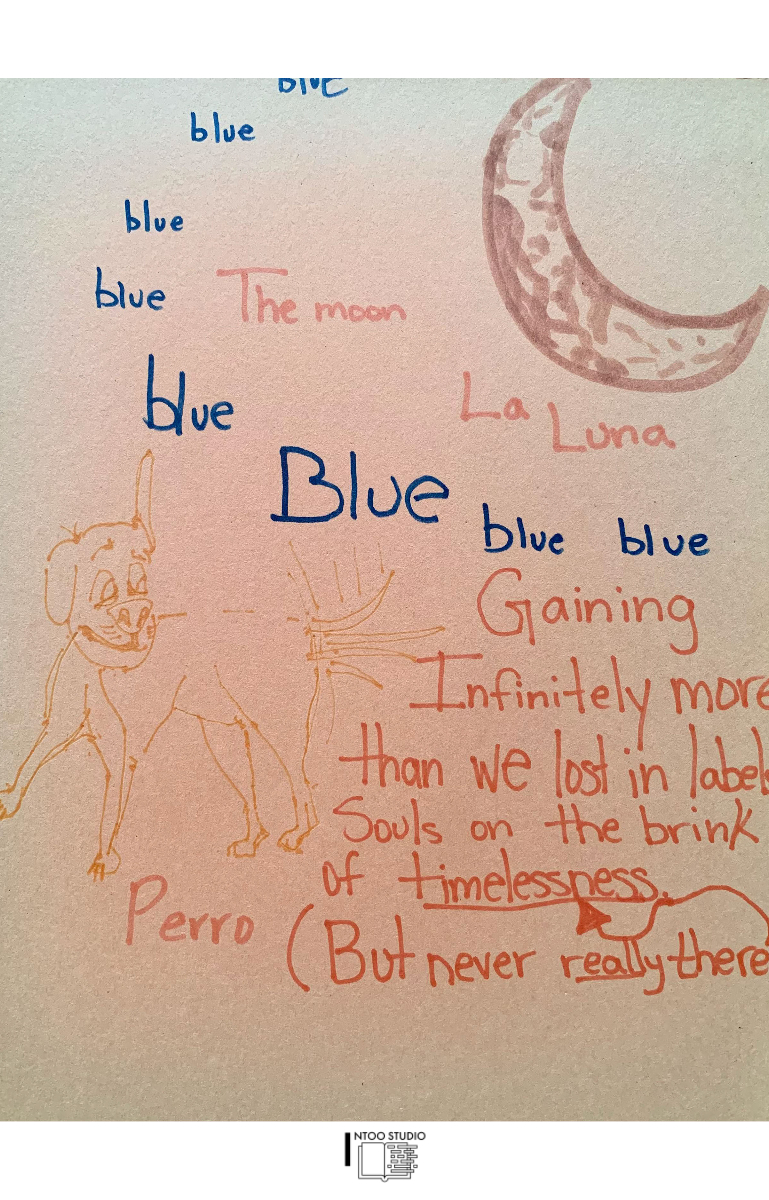 blue
blue
blue
blue
The moon
blue
La Luna
Blue
blue blue
Gaining
Infinitely more
than we lost in label
Souls on the brink
of timelessness.
Perro
(But never really there
NTOO STUDIO